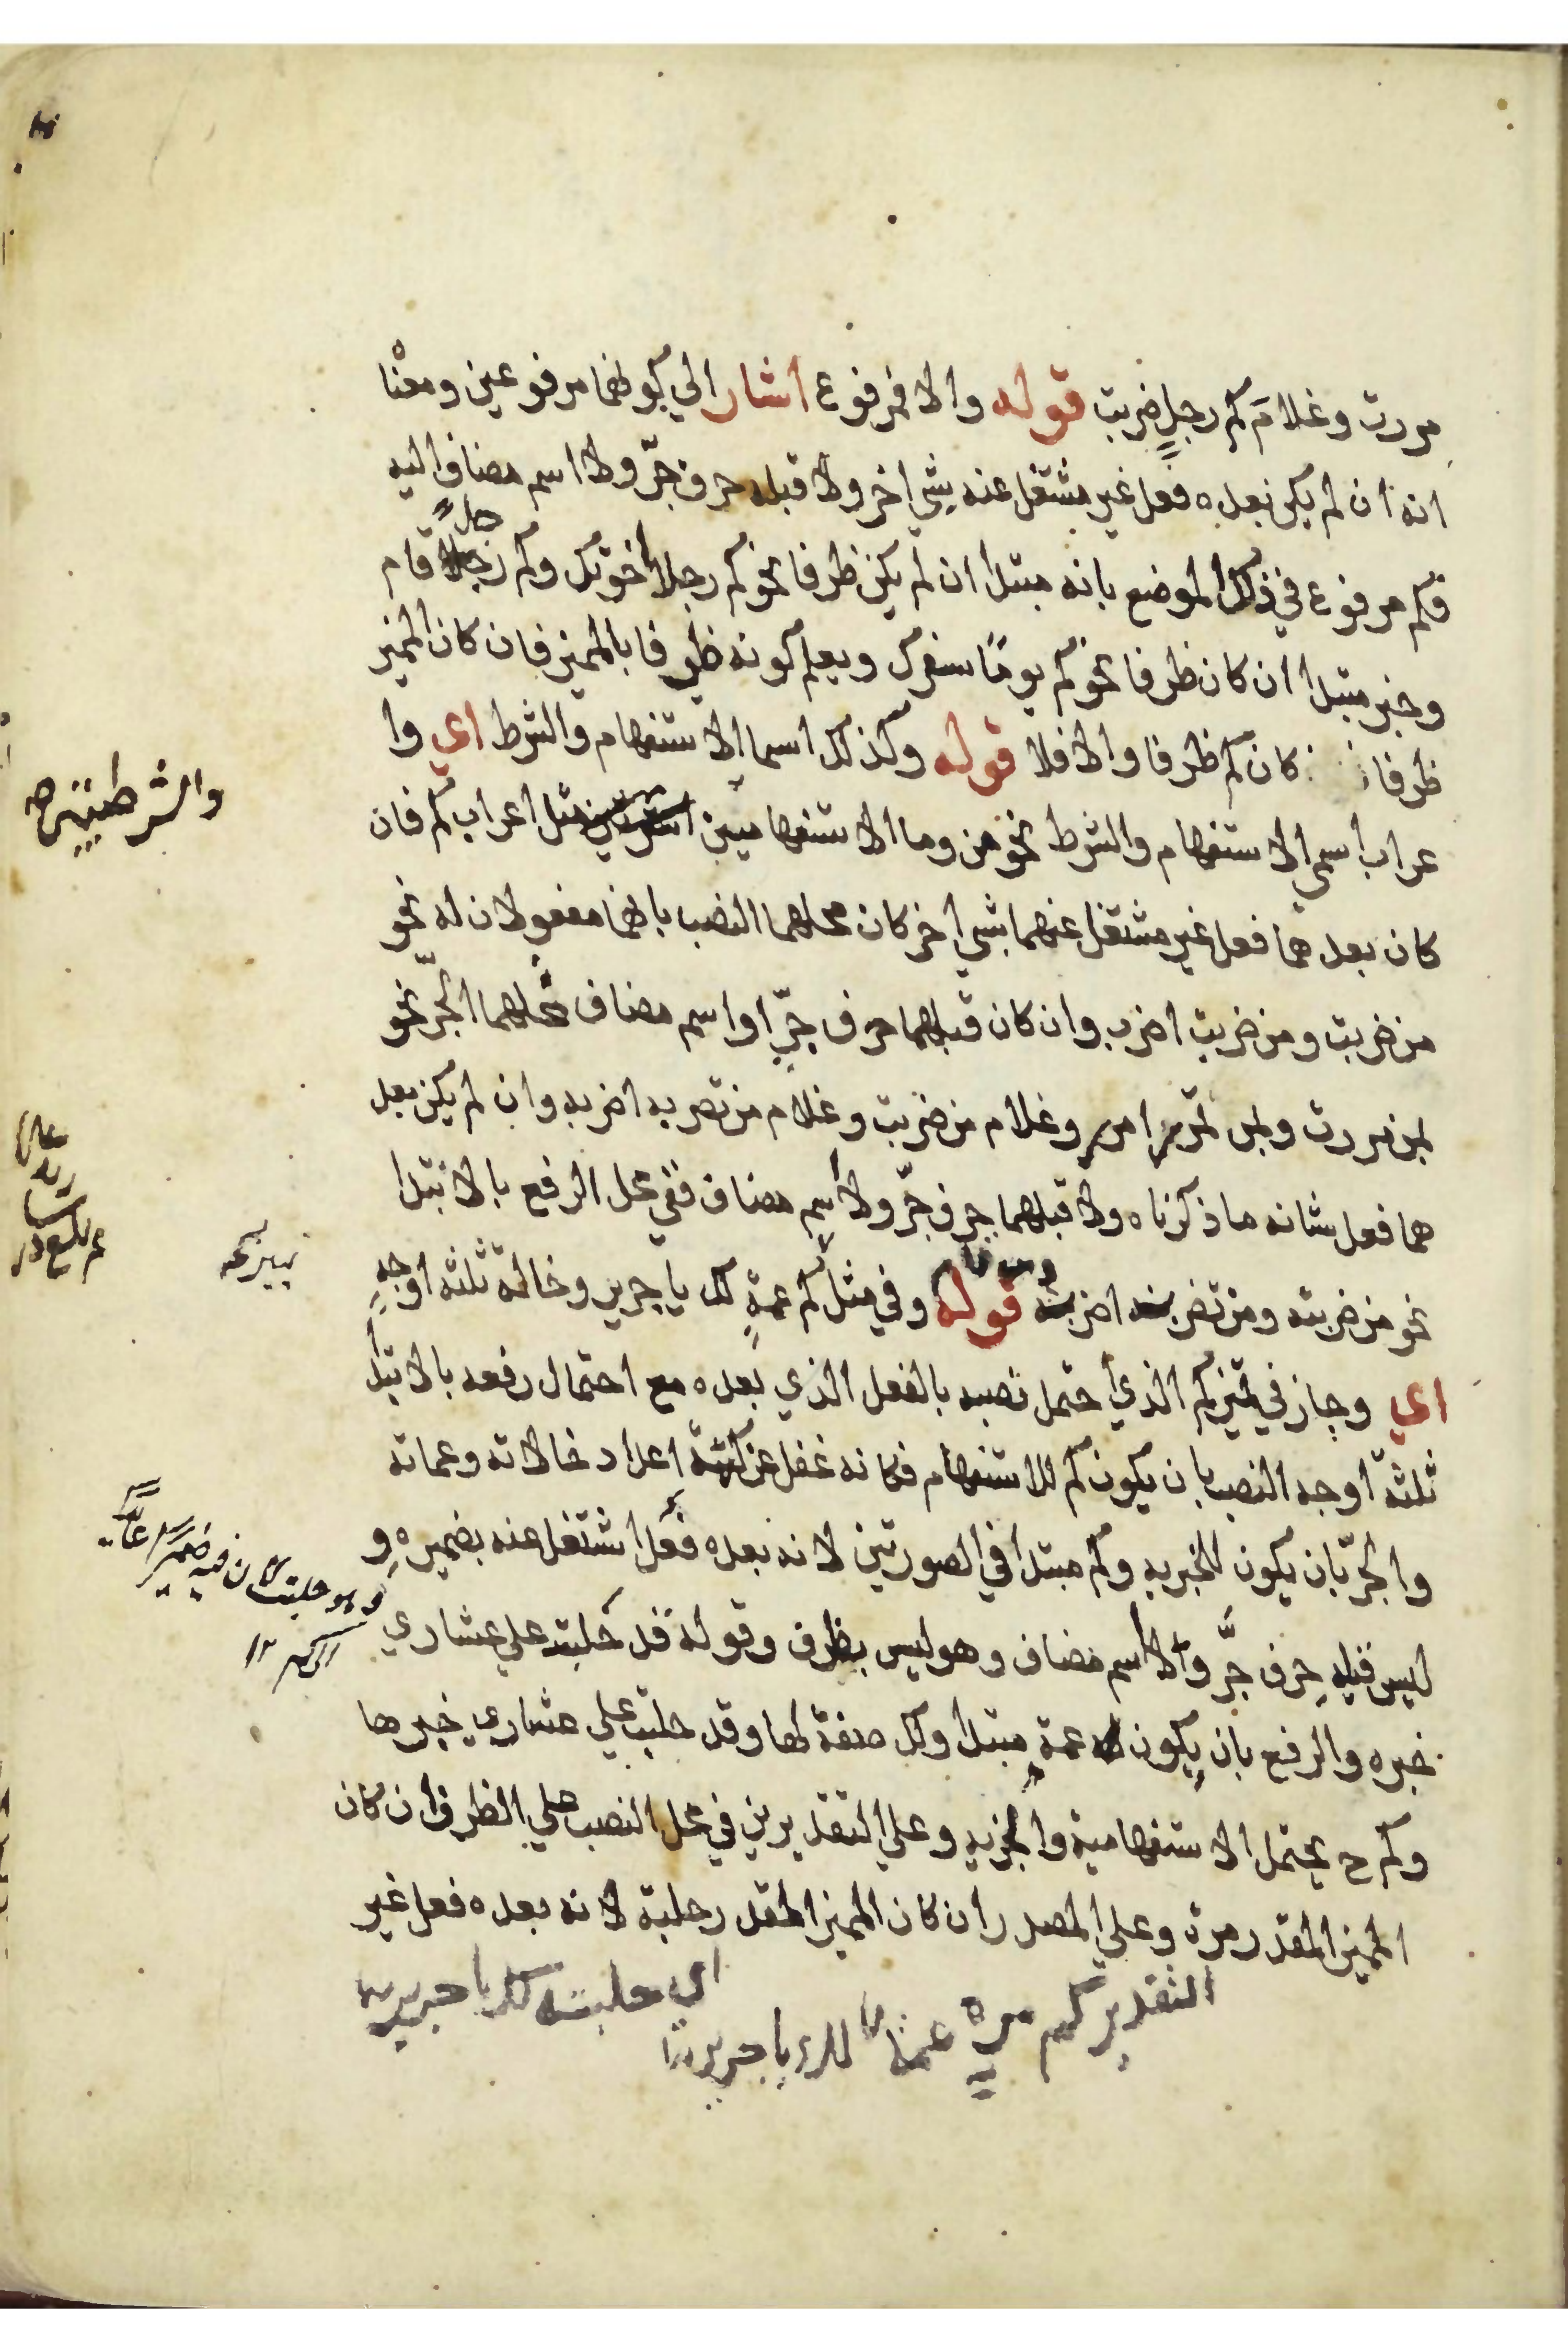 مررت وغلامَ كم رجلٍ ضربت قوله والا فمرفوع اشار الي كونهما مرفوعين ومعنا
انه ان لم يكن بعده فعل غير مشتغل عنه بشي اخر ولا قبله حرف جرّ ولا اسم مضاف اليه
فكم مرفوع في ذلك الموضع بانه مبتدا ان لم يكن ظرفا نحو كم رجلا اخوتك وكم رجلا قام
وخبر مبتدا ان كان ظرفا نحو كم يومًا سفرك ويعلم كونه ظرفا بالمميز فان كان المميز
ظرفا كان كم ظرفا والا فلا قوله وكذلك اسما الاستفهام والشرط اي وا
عراب اسمي الاستفهام والشرط نحو من وما الاستفهاميين مثل اعراب كم فان
كان بعدهما فعل غير مشتغل عنهما بشي اخر كان محلهما النصب بانهما مفعولان له نحو
من ضربت ومن ضربت اضرب وان كان قبلهما حرف جرّ او اسم مضاف محلهما الجرّ نحو
بمن مررت وبمن تمرر امرر وغلام من ضربت وغلام من تضربه اضربه وان لم يكن بعد
هما فعل شانه ما ذكرناه ولا قبلهما حرف جرّ ولا اسم مضاف ففي محل الرفع بالابتدا
نحو من ضربته ومن تضربه اضربه قوله وفي مثل كم عمةٍ لك يا جرير وخالة ثلثة اوجهٍ
اي وجاز في تمييز كم الذي احتمل نصبه بالفعل الذي بعده مع احتمال رفعه بالابتدا
ثلثة اوجه النصب بان يكون كم للاستفهام فكانه غفل عن كمية اعداد خالاته وعماته
والجرّ بان يكون للخبريه وكم مبتدا في الصورتين لانه بعده فعل اشتغل عنه بضميره و
ليس قبله حرف جرَّ ولا اسم مضاف وهو ليس بظرف وقوله قد حلبت علي عشاري
خبره والرفع بان يكون عمة مبتدا ولك صفة لها وقد حلبت علي عشاري خبرها
وكم ح يحتمل الاستفهامية والخبريه وعلي التقديرين في محل النصب علي الظرف ان كان
المميز المقدر مرة وعلي المصدر ان كان المميز المقدر حلبة لانه بعده فعل غير
التقدير كم مرة عمة لك يا جرير
اي حلبة لك يا جرير
والشرطيتين صح
وهو حلبت لان فيه ضميرا عايد
الي كم ١٢